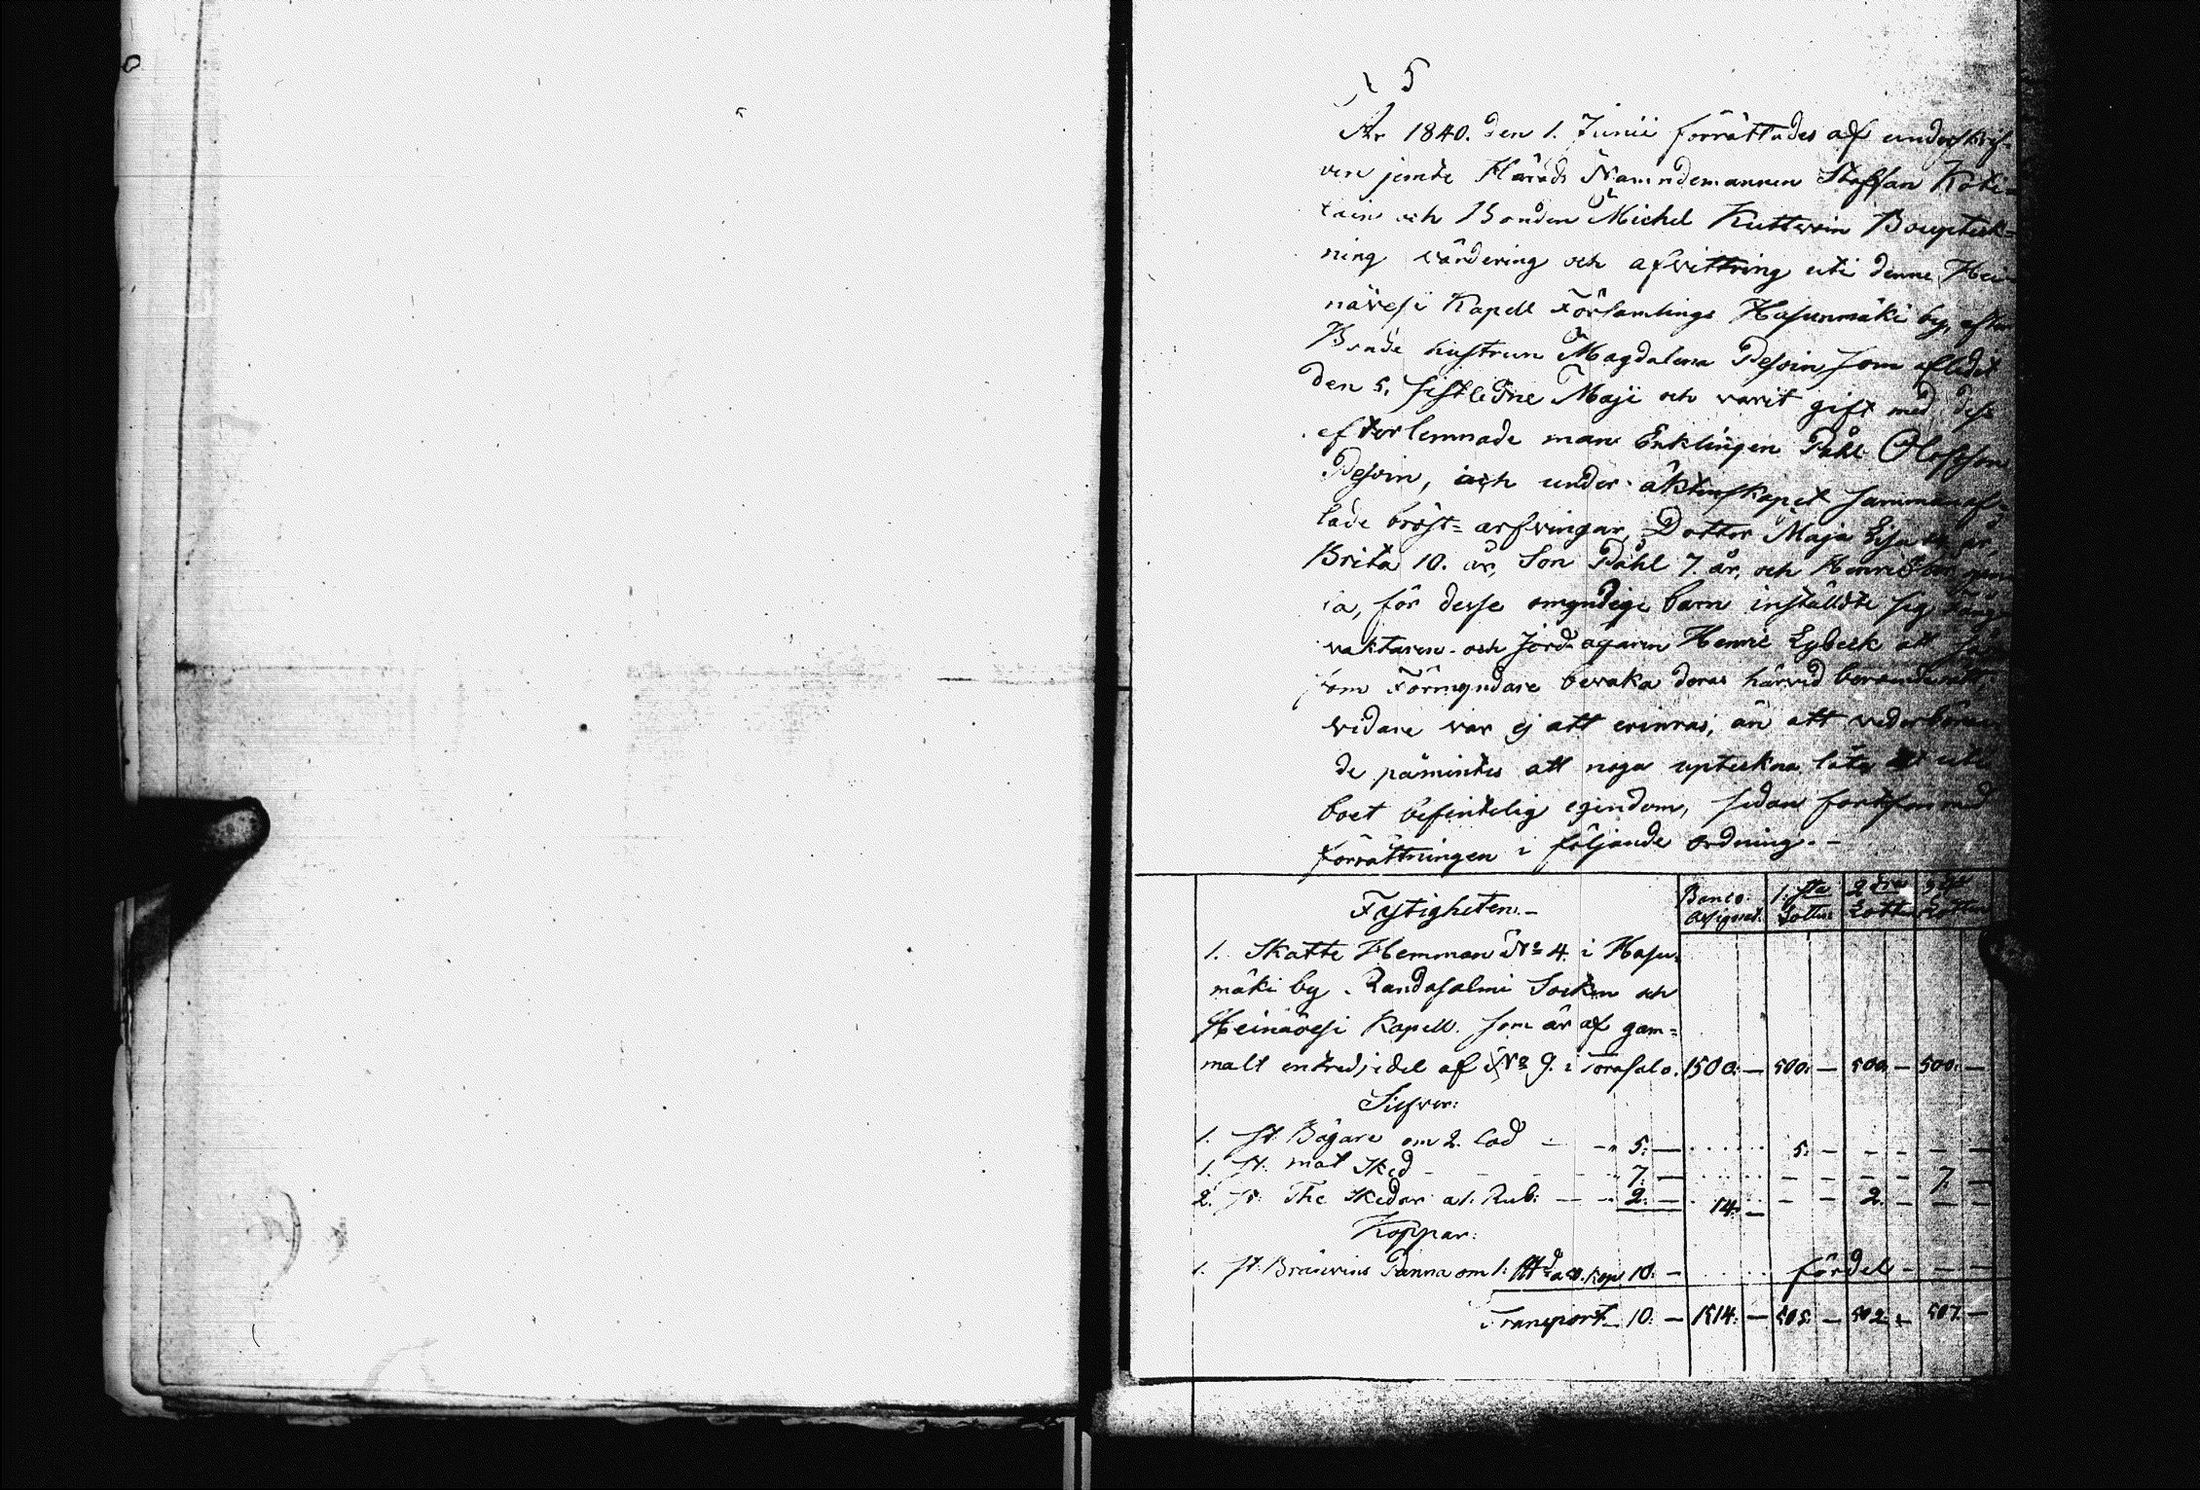 5
År 1840. den 1. Junii förrättades af underskrif-
ven jemte Härads Nämndemannen Staffan Koti-
lain och Bonden Michel Kuttvain Boupteck=
ning värdering och afvittring uti denne Hei-
nävesi Kapell Församlings Hasunmäki by, efter
Bonde hustrun Magdalena Pesoin, som aflidit
den 5. sistledne Maji och varit gift med dess
efterlemnade man Enklingen Påhl Olofsson
Pesoin, och under äktenskapet sammanaf-
lade bröst=arfvingar, Dotter Maja Lisa år,
Brita 10. år, Son Påhl 7. år, och Henric
ia, för desse omyndige barn inställdte sig
vaktaren och Jord ägaren Henric Lybeck att
som Förmyndare bevaka deras härvid beroende rätt,
vidare var ej att erinras, än att vederböran-
de påmintes att noga upteckna låta uti
boet befintelig egendom, sedan fortfors med
förrättningen i följande ordning. -
Fastigheten. - Banco Assignat. 1:sta Lotten 2dra Lotten 3dje Lotten
1. Skatte Hemman No 4. i Hasu-
mäki by. Randasalmi Socken och
Heinävesi Kapell. som är af gam=
malt en tredjedel af No 9. i Torasalo. 1500. — 500. — 500. — 500. —
Silfver:
1. st. Bägare om 2. Lod - - 5. — . . . . . 5. — - - - -
1. st. mat Sked - - - - 7. — . . . . . - - - - 7. —
2. st. The Skedar a 1. Rub: — - 2. — 14. — - - 2. — - -
Koppar:
1. st. Bränvins Panna om 1. 10. — . . . . fördel - - -
Transport 10. — 1514. — 505. — 502. — 507. —